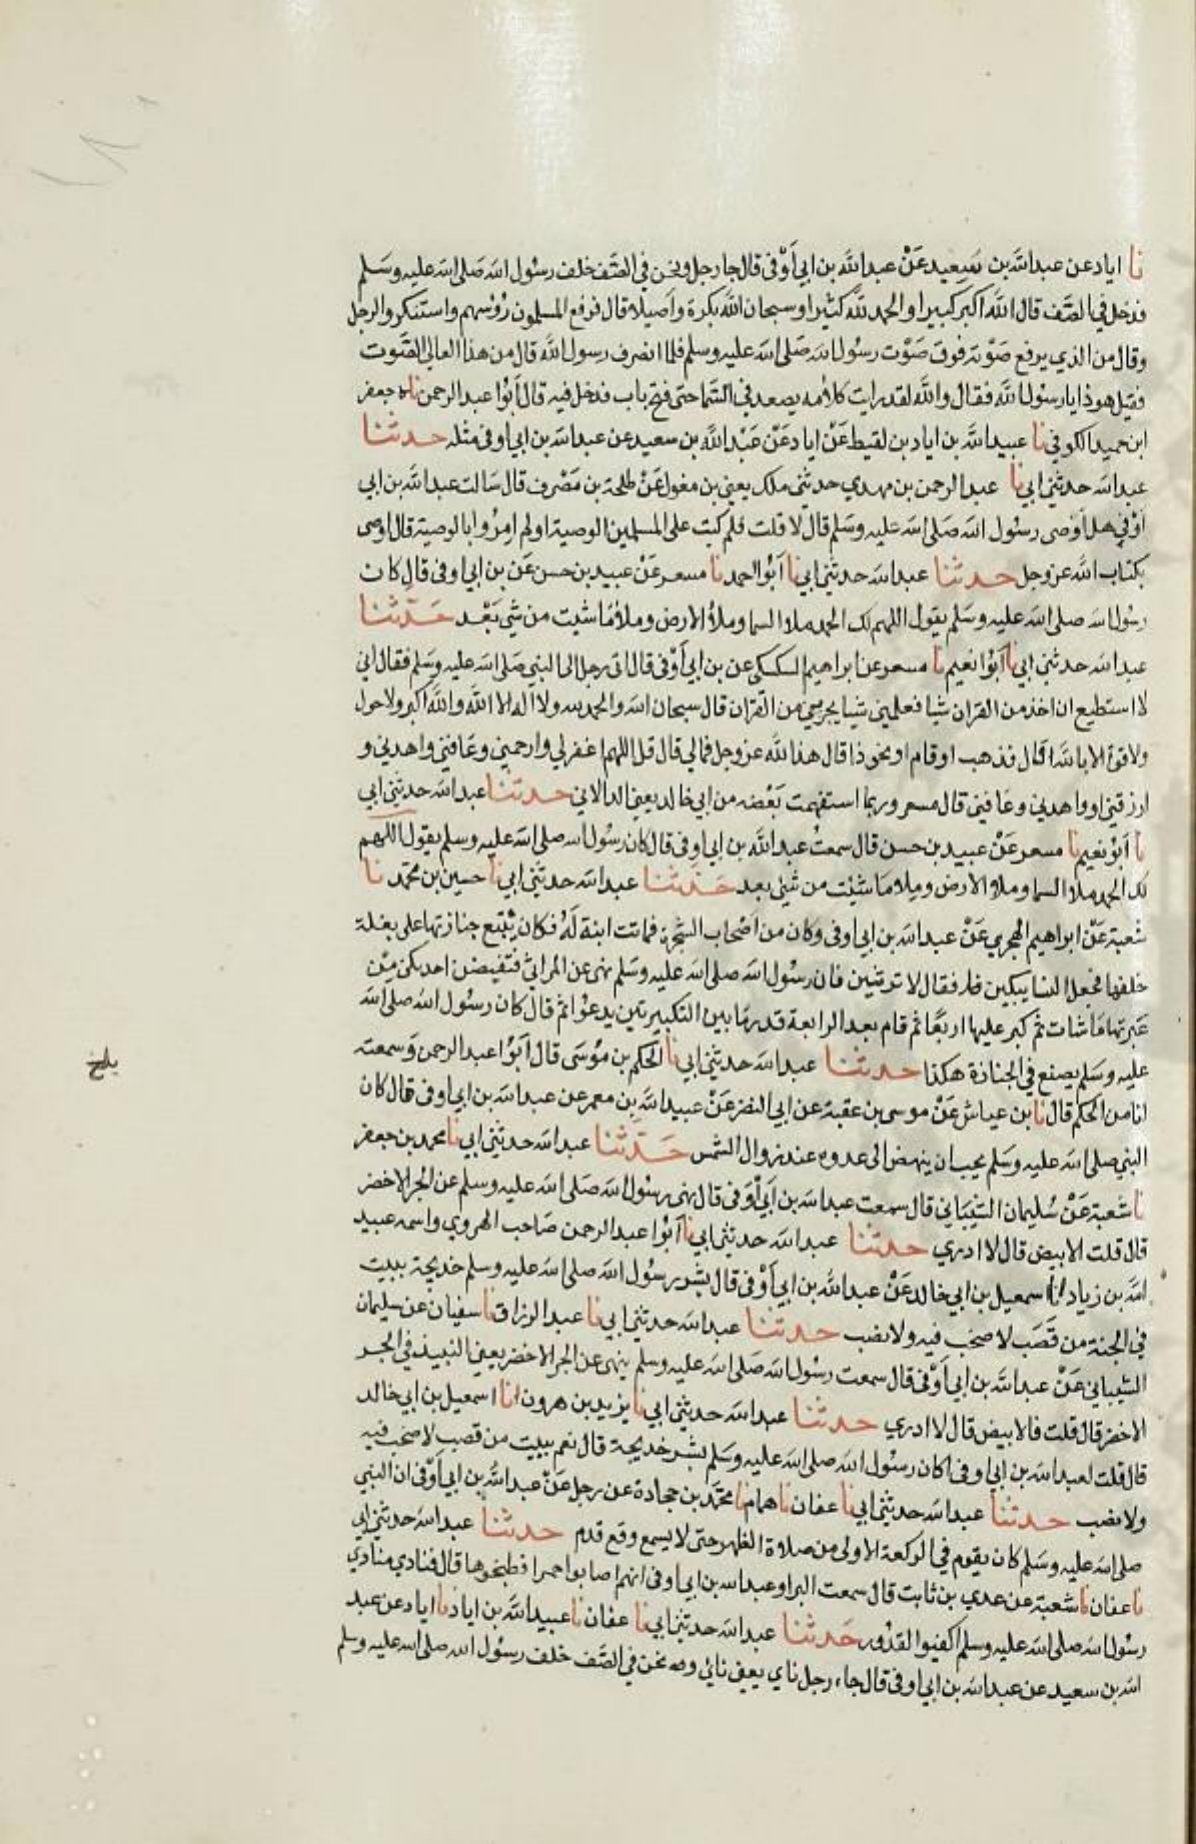 نا اياد عن عبد الله بن سعيد عن عبد الله بن ابي أوفى قال جا رجل ونحن في الصف خلف رسول الله صلى الله عليه وسلم
فدخل في الصف قال الله اكبر كبيرا والحمد لله كثيرا وسبحان الله بكرة واصيلا قال فرفع المسلمون رؤسهم واستنكروا الرجل
وقال من الذي يرفع صوته فوق صوت رسول الله صلى الله عليه وسلم فلما انصرف رسول الله قال من هذا العالي الصوت
فقيل هو ذا يا رسول الله فقال والله لقد رايت كلامه يصعد في السما حتى فتح باب فدخل فيه قال أبوا عبد الرحمن نا جعفر
ابن حميد الكوفي نا عبيد الله بن اياد بن لقيط عن اياد عن عبد الله بن سعيد عن عبد الله بن ابي اوفى مثله حدثنا
عبد الله حدثني ابي نا عبد الرحمن بن مهدي حدثني ملك يعني بن مغول عن طلحة بن مصرف قال سالت عبد الله بن ابي
أوفى هل أوصى رسول الله صلى الله عليه وسلم قال لا قلت فلم كتب على المسلمين الوصية او لم امروا بالوصية قال اوصى
بكتاب الله عز وجل حدثنا عبد الله حدثني ابي نا أبوا احمد نا مسعر عن عبيد بن حسن عن بن ابي اوفى قال كان
رسول الله صلى الله عليه وسلم يقول اللهم لك الحمد ملا السما وملأ الارض وملأ ما شيت من شي بعد حدثنا
عبد الله حدثني ابي نا أبوا نعيم نا مسعر عن ابراهيم السكسكي عن بن ابي أوفى قال اتى رجل الى النبي صلى الله عليه وسلم فقال اني
لا استطيع ان اخذ من القران شيا فعلمني شيا يجزيني من القران قال سبحان الله والحمد لله ولا اله الا الله والله اكبر ولا حول
ولا قوة الا بالله قال فذهب او قام او نحو ذا قال هذا لله عز وجل فما لي قال قل اللهم اغفر لي وارحمني وعافني واهدني و
ارزقني او واهدني وعافني قال مسعر وربما استفهمت بعضه من ابي خالد يعني الدالاني حدثنا عبد الله حدثني ابي
نا أبو نعيم نا مسعر عن عبيد بن حسن قال سمعت عبد الله بن ابي اوفى قال كان رسول الله صلى الله عليه وسلم يقول اللهم
لك الحمد ملا السما وملا الارض وملا ما شئت من شيئ بعد حدثنا عبد الله حدثني ابي نا حسين بن محمد نا
شعبة عن ابراهيم الهجري عن عبد الله بن ابي اوفى وكان من اصحاب الشجرة فماتت ابنة له فكان يتبع جنازتها على بغلة
خلفها فجعل النسا يبكين فقال لا ترثين فان رسول الله صلى الله عليه وسلم نهى عن المراثي فتفيض احديكن من
عبرتها ما شات ثم كبر عليها اربعا ثم قام بعد الرابعة قدر ما بين التكبيرتين يدعوا ثم قال كان رسول الله صلى الله
عليه وسلم يصنع في الجنازة هكذا حدثنا عبد الله حدثني ابي نا الحكم بن موسى قال أبوا عبد الرحمن وسمعته
انا من الحكم قال نا بن عياش عن موسى بن عقبة عن ابي النضر عن عبيد الله بن معمر عن عبد الله بن ابي اوفى قال كان
النبي صلى الله عليه وسلم يحب ان ينهض الى عدوه عند زوال الشمس حدثنا عبد الله حدثني ابي نا محمد بن جعفر
نا شعبة عن سليمان الشيباني قال سمعت عبد الله بن ابي أوفى قال نهى رسول الله صلى الله عليه وسلم عن الجر الاخضر
قال قلت الابيض قال لا ادري حدثنا عبد الله حدثني ابي نا أبوا عبد الرحمن صاحب الهروي واسمه عبيد
الله بن زياد انا اسمعيل بن ابي خالد عن عبد الله بن ابي أوفى قال بشر رسول الله صلى الله عليه وسلم خديجة ببيت
في الجنة من قصب لا صخب فيه ولا نصب حدثنا عبد الله حدثني ابي نا عبد الرزاق نا سفيان عن سليمان
الشيباني عن عبد الله بن ابي أوفى قال سمعت رسول الله صلى الله عليه وسلم ينهى عن الجر الاخضر يعني النبيذ في الجر
الاخضر قال قلت فالابيض قال لا ادري حدثنا عبد الله حدثني ابي نا يزيد بن هرون انا اسمعيل بن ابي خالد
قال قلت لعبد الله بن ابي اوفى اكان رسول الله صلى الله عليه وسلم بشر خديجة قال نعم ببيت من قصب لا صخب فيه
ولا نصب حدثنا عبد الله حدثني ابي نا عفان نا همام نا محمد بن جحادة عن رجل عن عبد الله بن ابي أوفى ان النبي
صلى الله عليه وسلم كان يقوم في الركعة الاولى من صلاة الظهر حتى لا يسمع وقع قدم حدثنا عبد الله حدثني ابي
نا عفان نا شعبة عن عدي بن ثابت قال سمعت البرا وعبد الله بن ابي اوفى انهم اصابوا حمرا فطبخوها قال فنادى منادي
رسول الله صلى الله عليه وسلم اكفيوا القدور حدثنا عبد الله حدثني ابي نا عفان نا عبيد الله بن اياد نا اياد عن عبد
الله بن سعيد عن عبد الله بن ابي اوفى قال جاء رجل ناي يعني نائي ونحن في الصف خلف رسول الله صلى الله عليه وسلم
بلغ